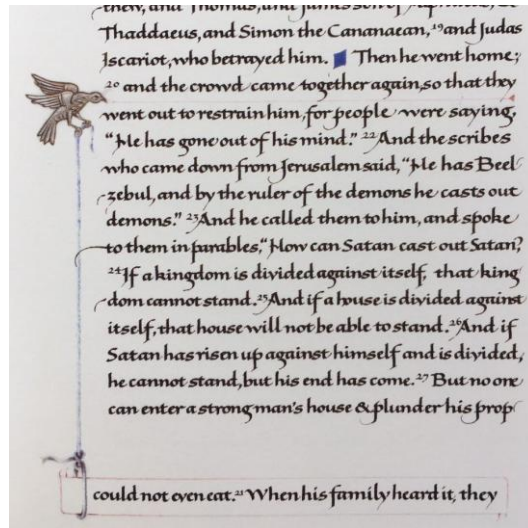 thew, and Thomas, and James son of Alphaeus, &
Thaddaeus, and Simon the Cananaean, ¹⁹and Judas
Iscariot, who betrayed him. Then he went home;
²⁰ and the crowd came together again, so that they
went out to restrain him, for people were saying,
“He has gone out of his mind.” ²²And the scribes
who came down from Jerusalem said, “He has Beel
zebul, and by the ruler of the demons he casts out
demons.” ²³And he called them to him, and spoke
to them in parables, “How can Satan cast out Satan?
²⁴If a kingdom is divided against itself, that king
dom cannot stand. ²⁵And if a house is divided against
itself, that house will not be able to stand. ²⁶And if
Satan has risen up against himself and is divided,
he cannot stand, but his end has come. ²⁷ But no one
can enter a strong man's house & plunder his prop
could not even eat. ²¹When his family heard it, they